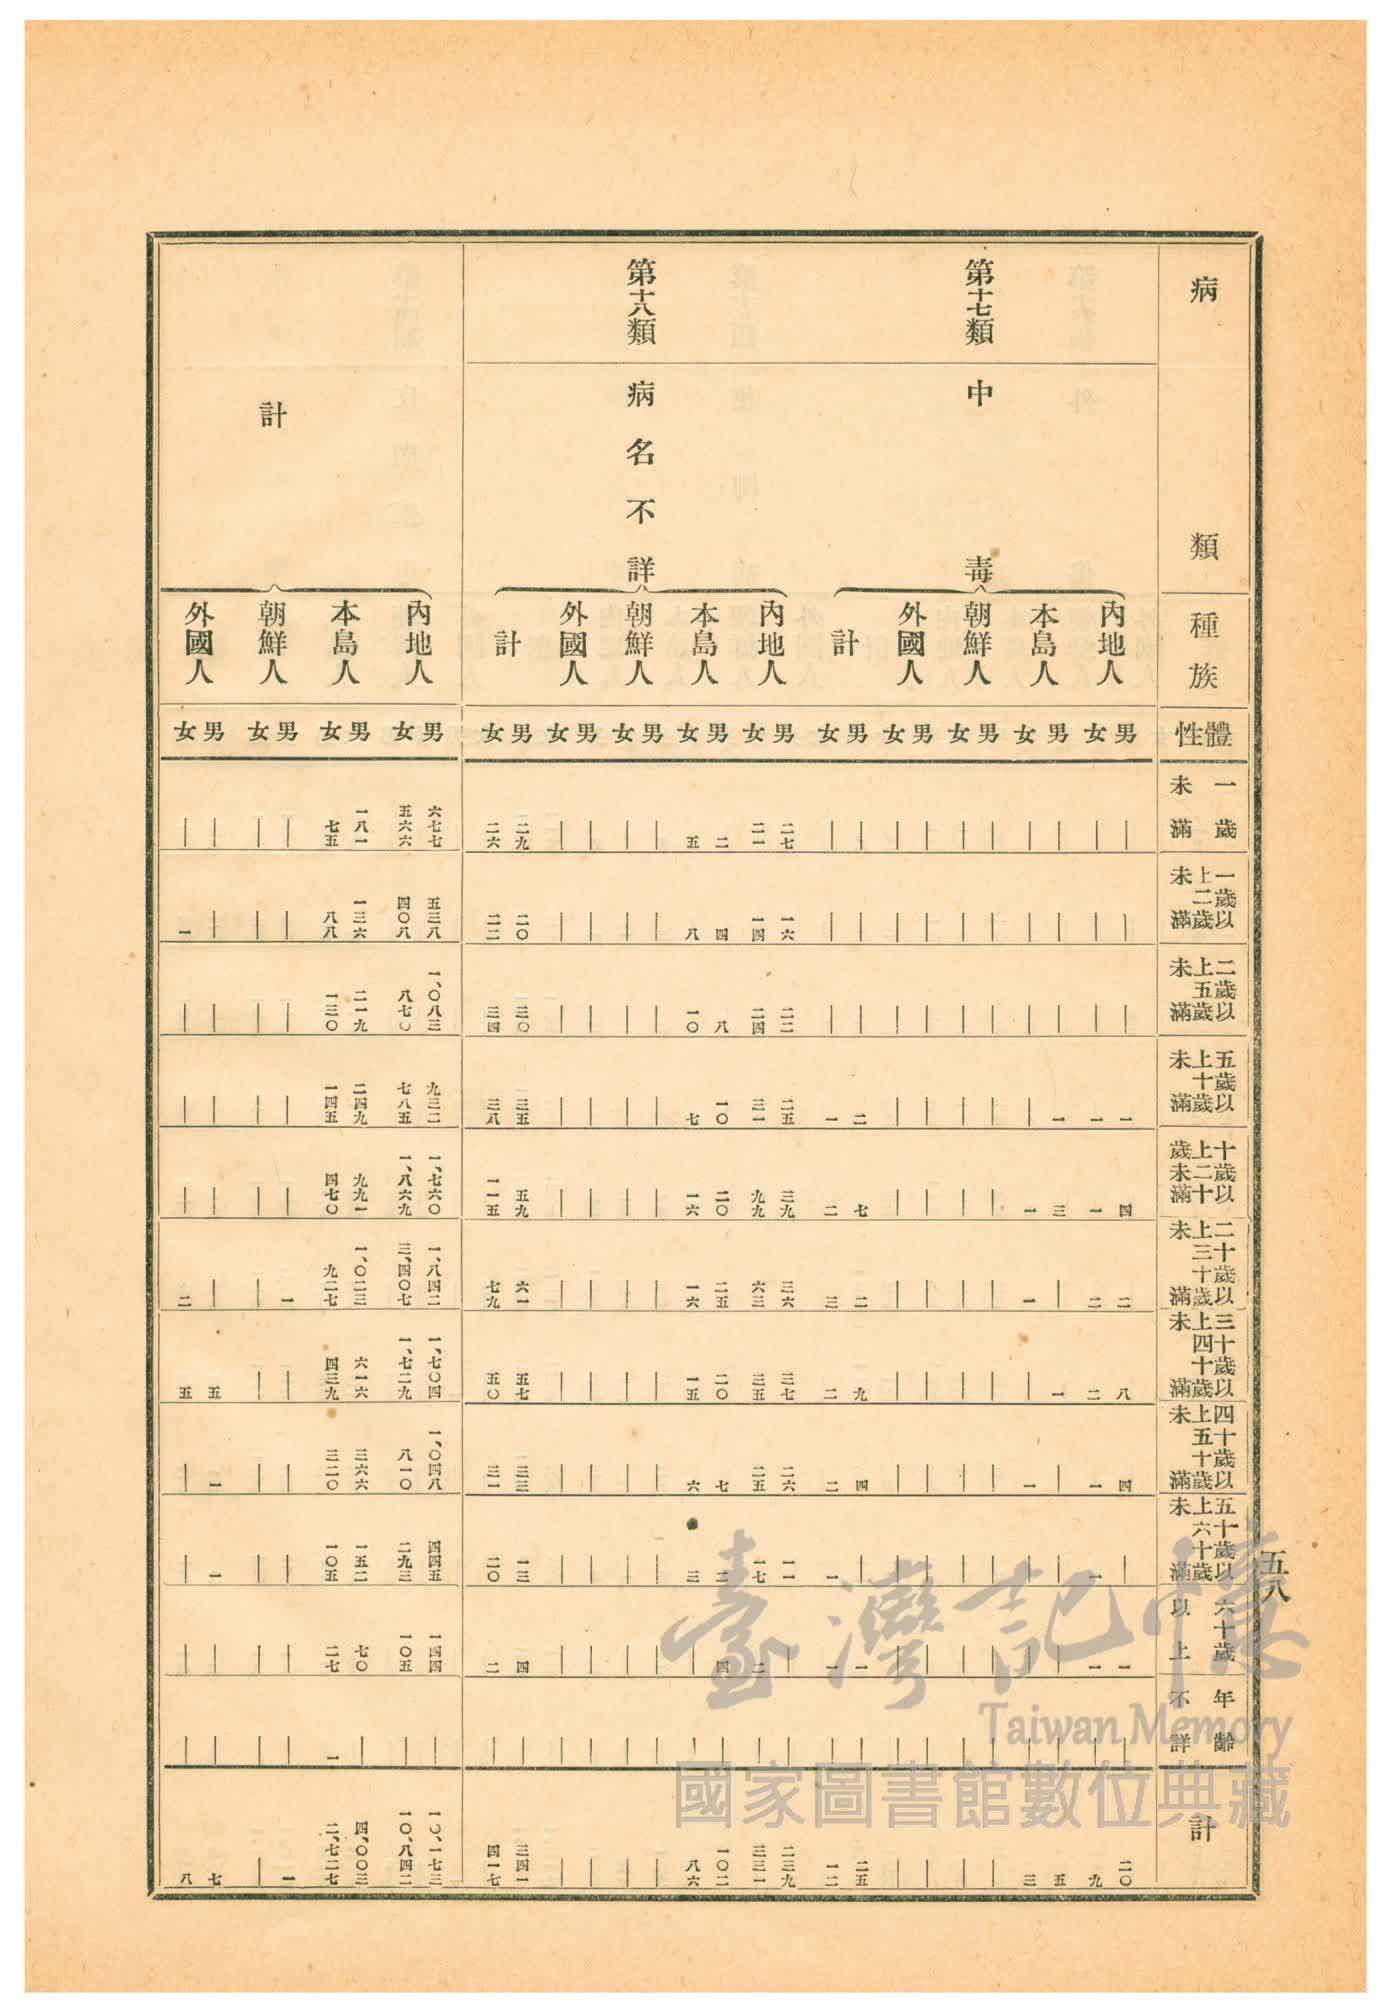 五八
病類
種族
體性
一歲未滿
一歲以上二歲未滿
二歲以上五歲未滿
五歲以上十歲未滿
十歲以上二十歲未滿
二十歲以上三十歲未滿
三十歲以上四十歲未滿
四十歲以上五十歲未滿
五十歲以上六十歲未滿
六十歲以上
年齡不詳
計
第十七類 中毒
內地人
男 ｜ ｜ ｜ 一 四 二 八 四 ｜ 一 ｜ 二〇
女 ｜ ｜ ｜ 一 一 二 二 一 一 一 ｜ 九
本島人
男 ｜ ｜ ｜ 一 三 ｜ 一 ｜ ｜ ｜ ｜ 五
女 ｜ ｜ ｜ ｜ 一 一 ｜ 一 ｜ ｜ ｜ 三
朝鮮人
男 ｜ ｜ ｜ ｜ ｜ ｜ ｜ ｜ ｜ ｜ ｜ ｜
女 ｜ ｜ ｜ ｜ ｜ ｜ ｜ ｜ ｜ ｜ ｜ ｜
外國人
男 ｜ ｜ ｜ ｜ ｜ ｜ ｜ ｜ ｜ ｜ ｜ ｜
女 ｜ ｜ ｜ ｜ ｜ ｜ ｜ ｜ ｜ ｜ ｜ ｜
計
男 ｜ ｜ ｜ 二 七 二 九 四 ｜ 一 ｜ 二五
女 ｜ ｜ ｜ 一 二 三 二 二 一 一 ｜ 一二
第十八類 病名不詳
內地人
男 二七 一六 二二 二五 三九 三六 三七 二六 一一 ｜ ｜ 二三九
女 二一 一四 二四 三一 九九 六三 三五 二五 一七 二 ｜ 三三一
本島人
男 二 四 八 一〇 二〇 二五 二〇 七 二 四 ｜ 一〇二
女 五 八 一〇 七 一六 一六 一五 六 三 ｜ ｜ 八六
朝鮮人
男 ｜ ｜ ｜ ｜ ｜ ｜ ｜ ｜ ｜ ｜ ｜ ｜
女 ｜ ｜ ｜ ｜ ｜ ｜ ｜ ｜ ｜ ｜ ｜ ｜
外國人
男 ｜ ｜ ｜ ｜ ｜ ｜ ｜ ｜ ｜ ｜ ｜ ｜
女 ｜ ｜ ｜ ｜ ｜ ｜ ｜ ｜ ｜ ｜ ｜ ｜
計
男 二九 二〇 三〇 三五 五九 六一 五七 三三 一三 四 ｜ 三四一
女 二六 二二 三四 三八 一一五 七九 五〇 三一 二〇 二 ｜ 四一七
計
內地人
男 六七七 五三八 一、〇八三 九三二 一、七六〇 一、八四二 一、七〇四 一、〇四八 四四五 一四四 ｜ 一〇、一七三
女 五六六 四〇八 八七〇 七八五 一、八六九 三、四〇七 一、七二九 八一〇 二九三 一〇五 ｜ 一〇、八四二
本島人
男 一八一 一三六 二一九 二四九 九九一 一、〇二三 六一六 三六六 一五二 七〇 ｜ 四、〇〇三
女 七五 八八 一三〇 一四五 四七〇 九二七 四三九 三二〇 一〇五 二七 一 二、七二七
朝鮮人
男 ｜ ｜ ｜ ｜ ｜ 一 ｜ ｜ ｜ ｜ ｜ 一
女 ｜ ｜ ｜ ｜ ｜ ｜ ｜ ｜ ｜ ｜ ｜ ｜
外國人
男 ｜ ｜ ｜ ｜ ｜ ｜ 五 一 一 ｜ ｜ 七
女 ｜ 一 ｜ ｜ ｜ 二 五 ｜ ｜ ｜ ｜ 八
臺灣記憶
Taiwan Memory
國家圖書館數位典藏